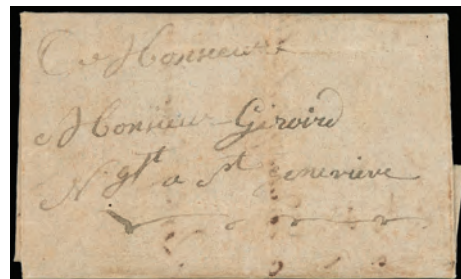 A Monsieur
Monsieur Giroird
N gt a St geneviève